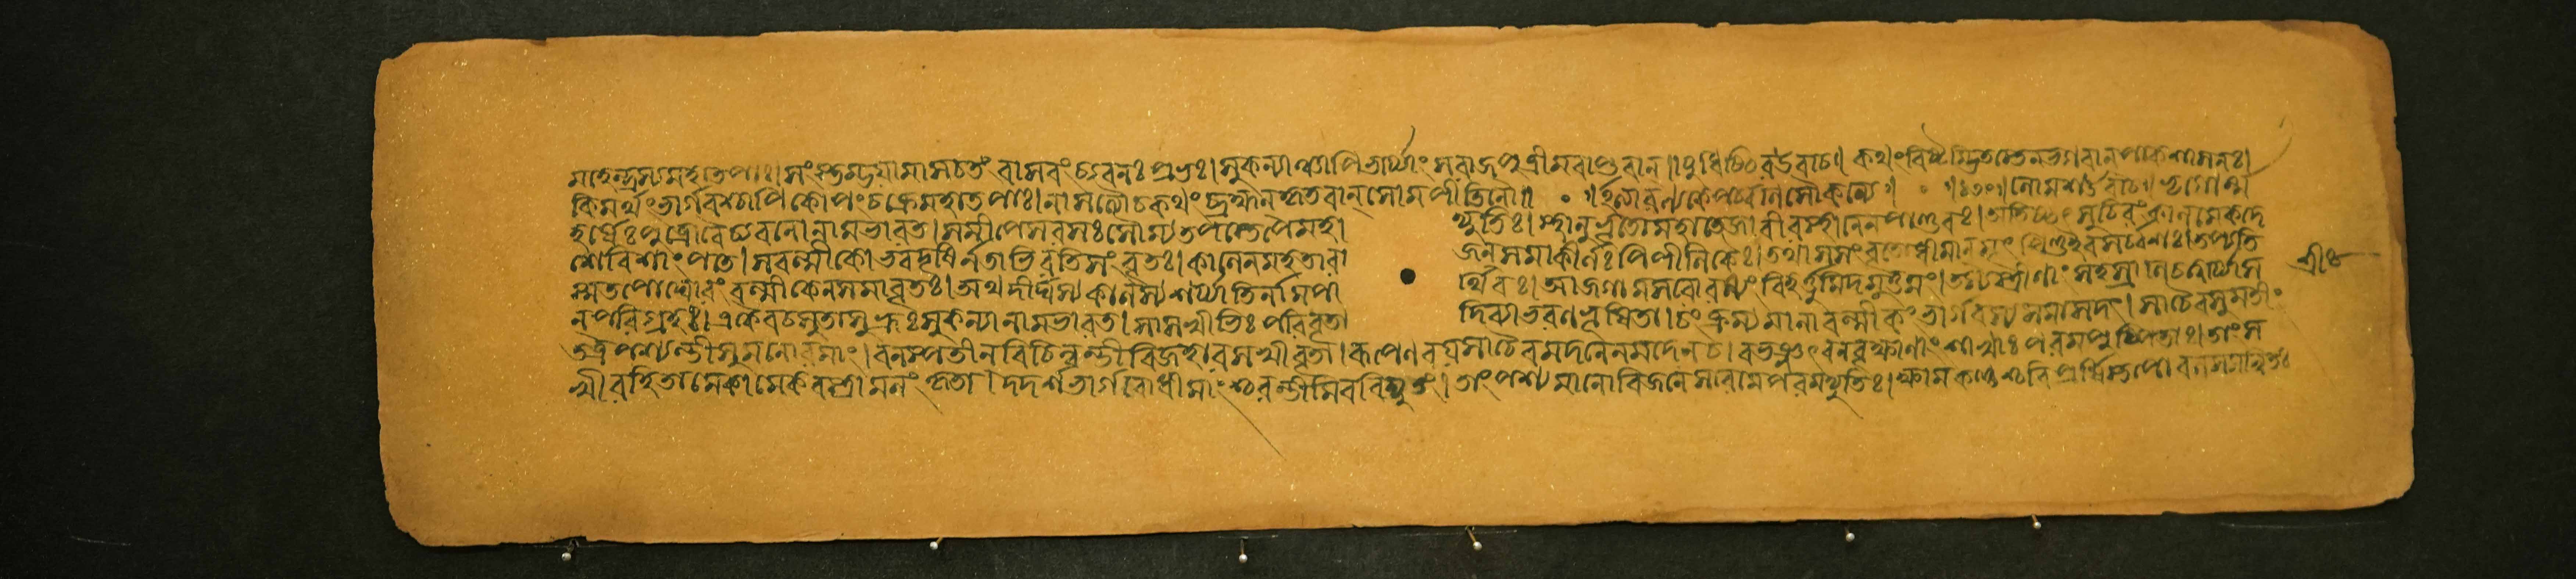 মহেন্দ্রস্যমহাতপাঃ। সংস্তম্ভয়ামাসচতং বাসবং চ্যবনঃ প্রভুঃ। সুকন্যাঞ্চাপিভার্য্যাং সরাজপুত্রীমবাপ্তবান্॥ যুধিষ্ঠিরউবাচ। কথংবিষ্টম্ভিতস্তেনভগবান্পাকশাসনঃ।
কিমর্থংভার্গবশ্চাপি কোপংচক্রেমহাতপাঃ। নাসত্যৌচকথং ব্রহ্মন্কৃতবান্সোমপীতিনৌ॥ ॰ ॥ইত্যারণ্যকেপর্ব্বণিসৌকন্যে॥ ॰ লোমশউবাচ॥ ভৃগোর্ম
হর্ষেঃপুত্রোবৈচ্যবনোনামভারত। সমীপেসরসঃসৌম্যতপস্তেপেমহা দ্যুতিঃ। স্থাণুভূতোমহাতেজাবীরস্থানেনপাণ্ডবঃ। অতিষ্ঠৎসুচিরংকালমেকদে
শেবিশাংপতে। সবল্মীকোভবদৃষির্লতাভিরতিসংবৃতঃ। কালেনমহতারা জন্সমাকীর্ণঃপিপীলিকৈঃ। তথাসসংবৃতোধীমান্মৃৎপিণ্ডইবসর্ব্বশঃ। তপ্যতি
স্মতপোঘোরংবল্মীকেনসমাবৃতঃ। অথদীর্ঘস্যকালস্যশর্য্যাতির্নামপা র্থিবঃ। আজগামসরোরম্যং বিহর্ত্তুমিদমুত্তমং। তস্যস্ত্রীণাংসহস্রাণিচত্বার্য্যাস
ন্পরিগ্রহঃ। একৈবচসুতাসুভ্রূঃসুকন্যানামভারত। সাসখীভিঃপরিবৃতা দিব্যাভরণভূষিতা। চংক্রম্যমানাবল্মীকংভার্গবস্যসমাসদৎ। সাচৈবসুমতীং
তত্রপশ্যন্তীসুমনোরমাং। বনস্পতীন্বিচিন্বন্তীবিজহারসখীবৃতা। রূপেণবয়সাচৈবমদনেনমদেনচ। বনবৃক্ষাণাংশাখাঃপরমপুষ্পিতাঃ। তাংস
খীরহিতামেকামেকবস্ত্রামলংকৃতাং। দদর্শভার্গবোধীমাংশ্চরন্তীমিববিদ্যুতং। তাংপশ্যমানোবিজনেসরেমেপরমদ্যুতিঃ। ক্ষামকণ্ঠশ্চবিপ্রর্ষিস্তপোবলসমন্বিতঃ